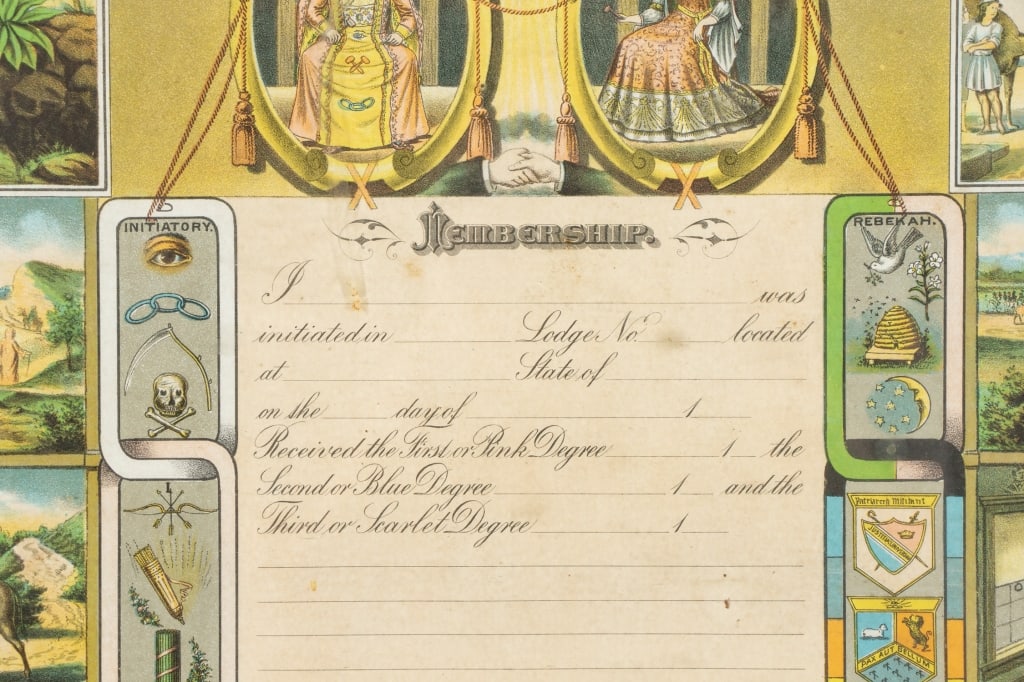 INITIATORY.
REBEKAH.
MEMBERSHIP.
I was
initiated in Lodge No. located
at State of
on the day of 1
Received the First or Pink Degree 1 the
Second or Blue Degree 1 and the
Third or Scarlet Degree 1
I.
Patriarch Militant
PAX AUT BELLUM